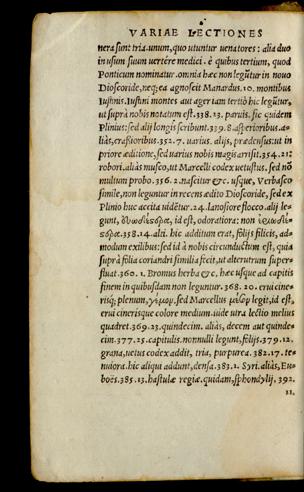 VARIAE LECTIONES
nera sunt tria. unum, quo utuntur uenatores: alia duo
in usum suum uertére medici. è quibus tertium, quod
Ponticum nominatur. omnia hæc non legũtur in nouo
Dioscoride, neq; ea agnoscit Manardus. 10. montibus
Iustinis. Iustini montes aut ager iam tertiò hic legũtur,
ut suprà nobis notatum est. 338.13. paruis. sic quidem
Plinius: sed alij longis scribunt. 339.8. asperioribus. a-
liàs, crassioribus. 352.7. uarius. alijs, prædensus: ut in
priore æditione, sed uarius nobis magis arrisit. 354.21:
robori. aliàs musco, ut Marcelli codex uetustus. sed nõ
multum probo. 356.2. nascitur &c. usque, Verbasco
simile, non leguntur in recens ædito Dioscoride, sed ex
Plinio huc accita uidẽtur. 24. lanosiore flocco. alij le-
gunt, id est, odoratiora: non
358.14. altri. hic additum erat, folijs filicis, ad-
modum exilibus: sed id à nobis circunductum est, quia
suprà folia coriandri similia fecit, ut alterutrum super-
fluat. 360.1. Bromus herba &c, hæc usque ad capitis
finem in quibusdam non leguntur. 368.20. erui cine-
risq; plenum, γέμον. sed Marcellus legit, id est,
erui cinerisque colore medium. uide utra lectio melius
quadret. 369.23. quindecim. aliàs, decem aut quinde-
cim. 377.25. capitulis. nonnulli legunt, folijs. 379.12.
grana, uetus codex addit, tria, purpurea. 382.17. te-
nuiora. hic aliqui addunt, densa. 383.1. Syri. aliàs, Eu-
boës. 385.13. hastulæ regiæ. quidam, sphondylij. 392.
11.